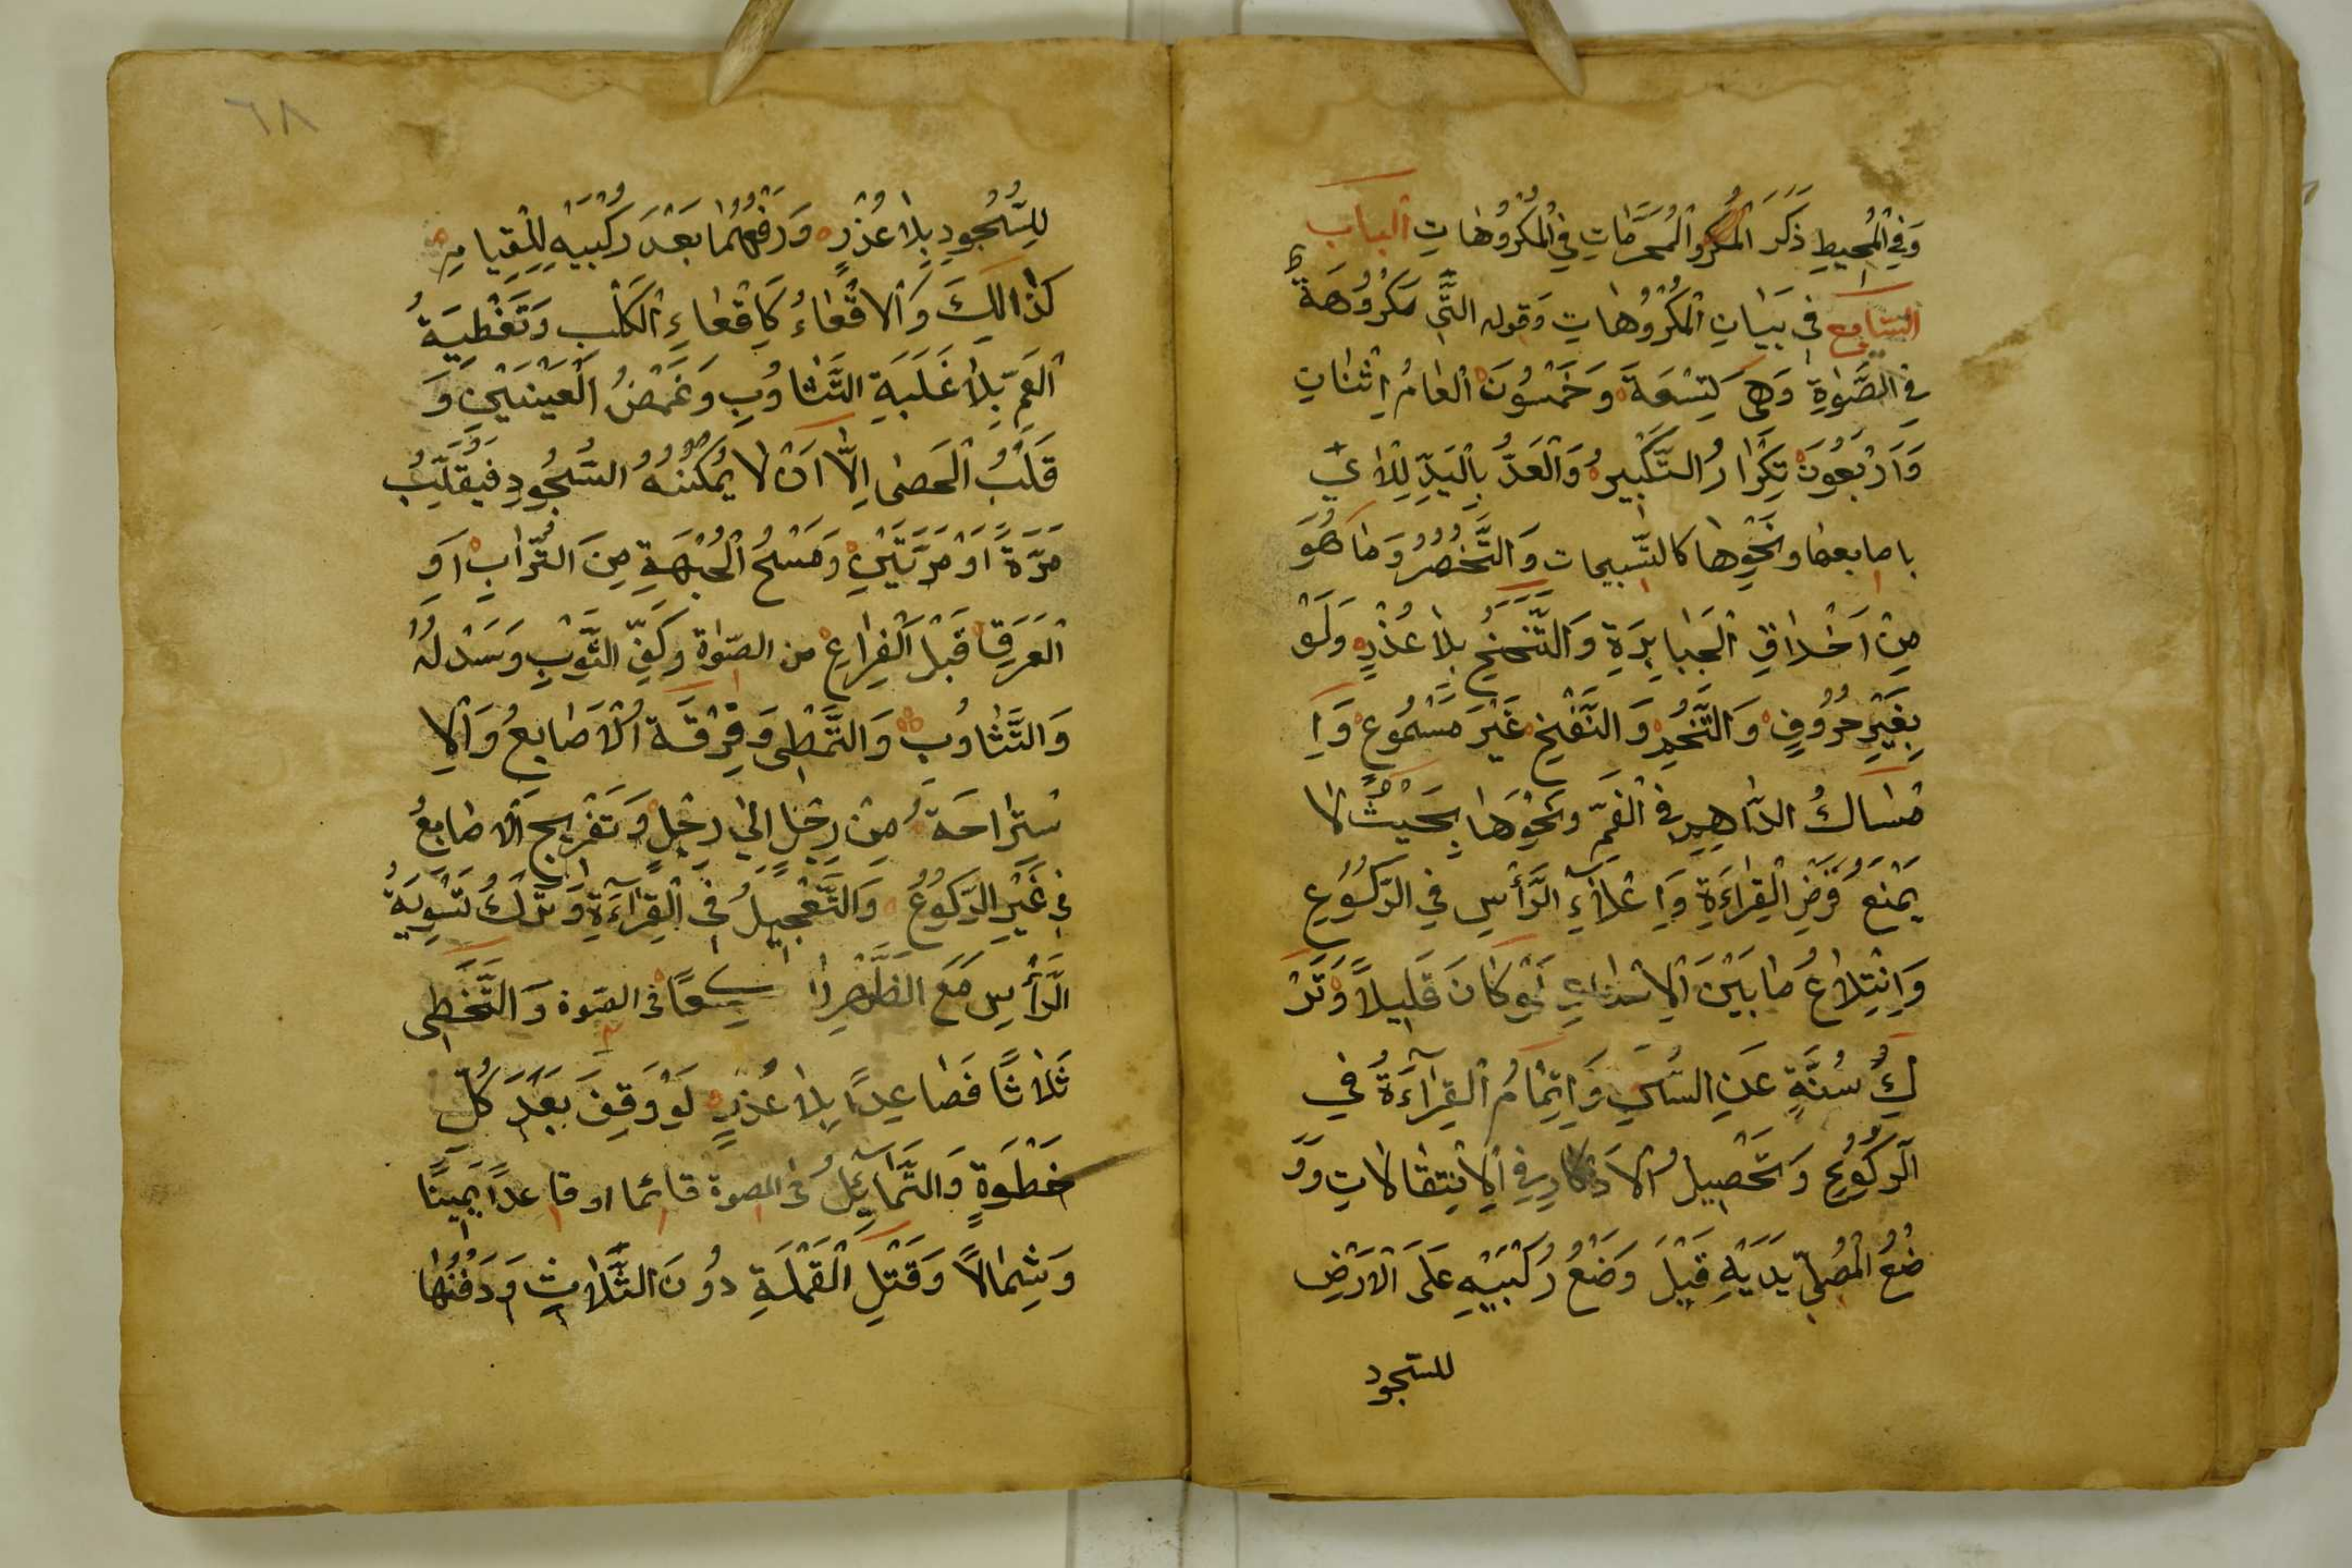 وَفِي الْمُحِيطِ ذَكَرَ الْمُحَرَّمَاتِ فِي الْمَكْرُوهَاتِ الباب
السابع فِي بَيَانِ الْمَكْرُوهَاتِ وَقوله الَّتِي مَكْرُوهَة
فِي الصَّلٰوةِ وَهِيَ كَتِسْعَةَ وَخَمْسُونَ الْعَامُ اِثْنَانِ
وَاَرْبَعُونَ تِكْرَارُ التَّكْبِيرِ وَالْعَدُّ بِالْيَدِ لِلْاٰيِ
باصابعها ونَحْوِهَا كالتّسبيحات وَالتَّخَصُّرُ وَمَا هُوَ
مِنْ اَخْلَاقِ الْجَبَابِرَةِ وَالتَّنَحْنُحِ بِلَا عُذْرٍ وَلَوْ
بِغَيْرِ حُرُوفٍ وَالتَّنَخُّمِ وَالنَّفْخِ غَيْرَ مَسْمُوعٍ وَاِ
مْسَاكُ الدَّرَاهِمِ فِي الْفَمِّ وَنَحْوِهَا بِحَيْثُ لَا
يَمْنَعُ فَرْضَ الْقِرَاءَةِ وَاِعْلَاءِ الرَّأْسِ فِي الرُّكُوعِ
وَابْتِلَاعُ مَا بَيْنَ الْاَسْنَانِ لَوْ كَانَ قَلِيلًا وَتَرْ
كُ سُنَّةٍ عَنِ السُّنَنِ وَاِتْمَامُ الْقِرَاءَةُ فِي
الرُّكُوعِ وَتَحْصِيلُ الْاَذْكَارِ فِي الْاِنْتِقَالَاتِ وَوَ
ضْعُ الْمُصَلِّي يَدَيْهِ قَبْلَ وَضْعُ رُكْبَتَيْهِ عَلَى الْاَرْضِ
للسّجود
٦٨
لِلسُّجُودِ بِلَا عُذْرٍ وَرَفْعُهُمَا بَعْدَ رُكْبَتَيْهِ لِلْقِيَامِ
كَذَالِكَ وَالْاِقْعَاءُ كَاِقْعَاءِ الْكَلْبِ وَتَغْطِيَةُ
الْفَمِّ بِلَا غَلَبَةِ التَّثَاوُبِ وَغَمْضُ الْعَيْنَيْنِ وَ
قَلْبُ الْحَصٰى اِلَّا اَنْ لَا يُمْكِنُهُ السُّجُودِ فَيُقَلِّبُ
مَرَّةً اَوْ مَرَّتَيْنِ وَمَسْحُ الْجَبْهَةِ مِنَ التُّرَابِ اَوِ
الْعَرَقِ قَبْلَ الْفِرَاغِ من الصّلوة وَكَفِّ الثَّوْبِ وَسَدْلُهُ
وَالتَّثَاوُبِ وَالتَّمَطِّي وَفِرْقَة الْاَصَابِعُ وَالْاِ
سْتِرَاحَةُ مِنْ رِجْلٍ اِلٰى رِجْلٍ وَتَفْرِيجِ الْاَصَابِعُ
فِي غَيْرِ الرُّكُوعُ وَالتَّعْجِيلُ فِي الْقِرَاءَةِ وَتَرْكُ تَسْوِيَةُ
الرَّأْسِ مَعَ الظَّهْرِ في الصلوة وَالتَّخَطِّي
ثَلَاثًا فَصَاعِدًا بِلَا عُذْرٍ لَوْ وَقِفَ بَعْدَ كُلِّ
خَطْوَةٍ وَالتَّمَايُلُ فى الصلوة قائما او قاعدًا يَمِينًا
وَشِمَالًا وَقَتْلِ الْقَمْلَةِ دُونَ الثَّلَاثِ وَدَفْنُهَا